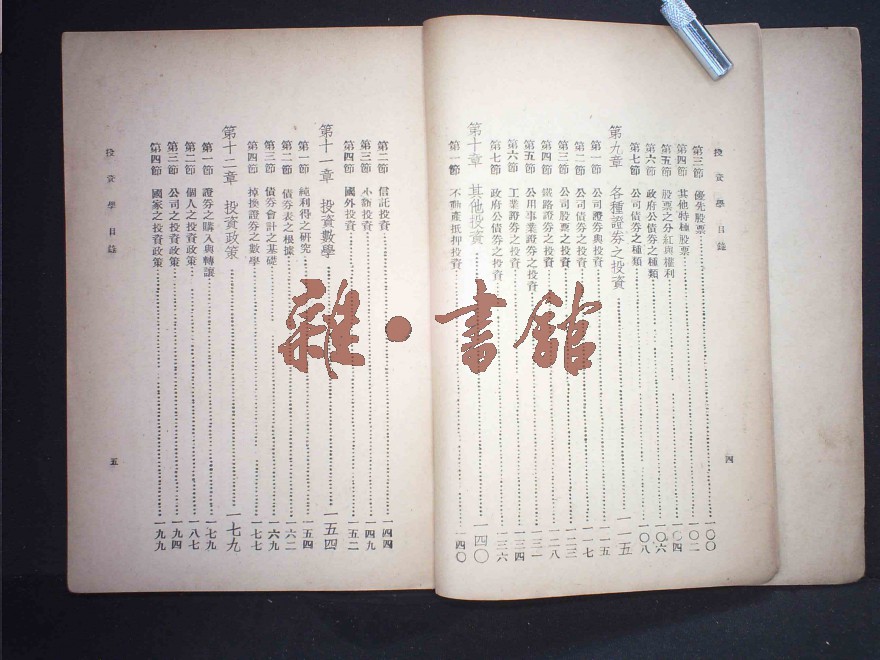 投資學 目錄
第三節 優先股票 一〇〇
第四節 其他特種股票 一〇二
第五節 股票之分紅與權利 一〇四
第六節 政府公債券之種類 一〇六
第七節 公司債券之種類 一〇八
第九章 各種證券之投資 一一五
第一節 公司證券與投資 一一五
第二節 公司債券之投資 一一七
第三節 公司股票之投資 一二三
第四節 鐵路證券之投資 一二八
第五節 公用事業證券之投資 一三一
第六節 工業證券之投資 一三四
第七節 政府公債券之投資 一三六
第十章 其他投資 一四〇
第一節 不動產抵押投資 一四〇
四
第二節 信託投資 一四四
第三節 小額投資 一四九
第四節 國外投資 一五二
第十一章 投資數學 一五四
第一節 純利得之研究 一五四
第二節 債券表之根據 一六二
第三節 債券會計之基礎 一六九
第四節 掉換證券之數學 一七七
第十二章 投資政策 一七九
第一節 證券之購入與轉讓 一七九
第二節 個人之投資政策 一八七
第三節 公司之投資政策 一九四
第四節 國家之投資政策 一九九
投資學 目錄
五
雜·書館